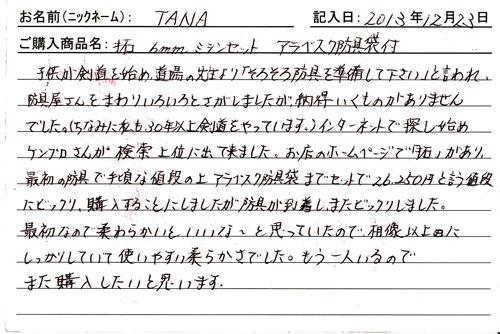 お名前(ニックネーム): TANA 記入日:2013年12月23日
ご購入商品名: 拓 6mmミシンセット アラベスク防具袋付
子供が剣道を始め、道場の先生より「そろそろ防具を準備して下さい」と言われ、
防具屋さんをまわりいろいろとさがしましたが、納得いくものがありません
でした。(ちなみに私も30年以上剣道をやっています。)インターネットで探し始め
ケンブロさんが検索上位に出て来ました。お店のホームページで「拓」があり、
最初の防具で手頃な値段の上アラベスク防具袋までセットで26,250円と言う値段
にビックリ、購入することにしましたが防具が到着しまたビックリしました。
最初なので柔わらかいといいなーと思っていたので相像以上に
しっかりしていて使いやすい柔らかさでした。もう一人いるので
また購入したいと思います。